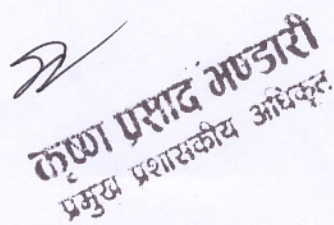 कृष्ण प्रसाद भण्डारी
प्रमुख प्रशासकीय अधिकृत